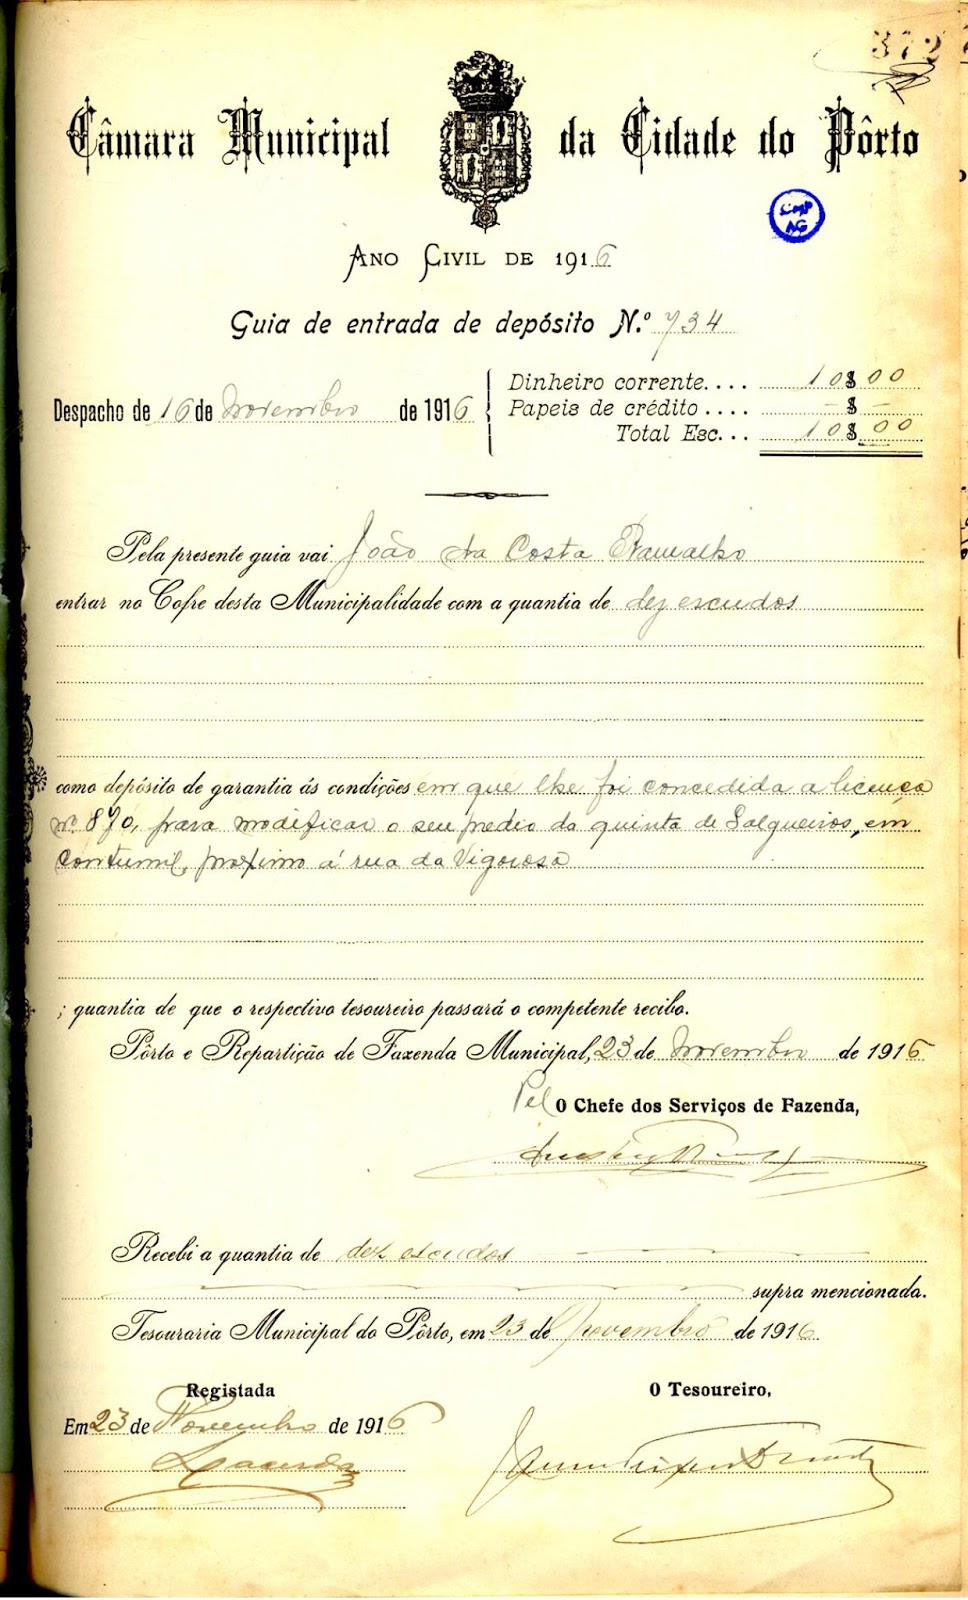 372
Câmara Municipal da Cidade do Pôrto
CMP
AG
Ano Civil de 1916
Guia de entrada de depósito N.º 734
Despacho de 16 de novembro de 1916
Dinheiro corrente.... 10$00
Papeis de crédito.... -$-
Total Esc... 10$00
Pela presente guia vai João da Costa Ramalho
entrar no Cofre desta Municipalidade com a quantia de dez escudos
como depósito de garantia ás condições em que lhe foi concedida a licença
nº 870, para modificar o seu predio da quinta de Salgueiros, em
Contumil, proximo á rua da Vigorosa
; quantia de que o respectivo tesoureiro passará o competente recibo.
Pôrto e Repartição de Fazenda Municipal, 23 de novembro de 1916
Pel O Chefe dos Serviços de Fazenda,
Recebi a quantia de dez escudos
supra mencionada.
Tesouraria Municipal do Pôrto, em 23 de Novembro de 1916
Registada
Em 23 de Novembro de 1916
Lacerda
O Tesoureiro,